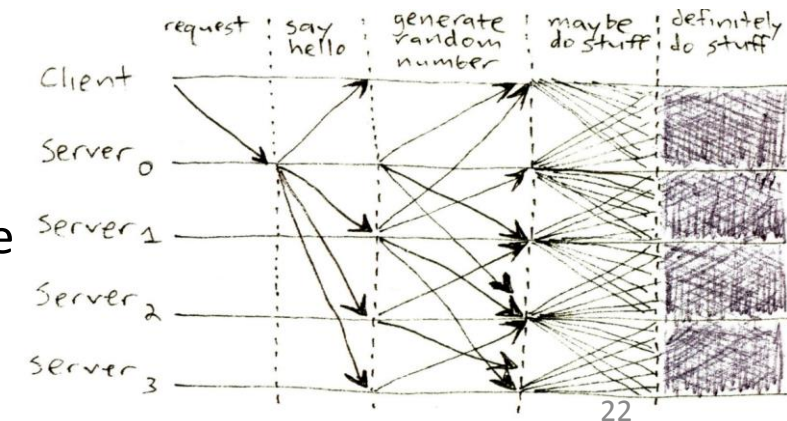 request
say
hello
generate
random
number
maybe
do stuff
definitely
do stuff
Client
Server 0
e
Server 1
Server 2
Server 3
22